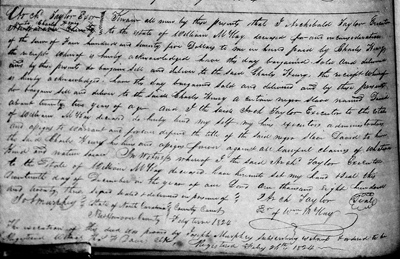 Arch Taylor Exor } Know all men by these presents that I Archibald Taylor Executor
to Charles King } to the estate of William McKay deceased for and in consideration
of the sum of Four hundred and Seventy five Dollars to me in hand paid by Charles King
the receipt whereof is hereby acknowledged have this day bargained sold and delivered
and by these presents do bargain sell and deliver to the said Charles King the receipt whereof
is hereby acknowledged, have this day bargained sold and delivered and by these presents
do bargain sell and deliver to the said Charles King a certain negro slave named
about twenty two years of age And I the said Arch Taylor Executor to the estate
of William McKay deceased do hereby bind my self my heirs executors & administrators
and assigns to warrant and forever defend the title of the said negro slave Daniel to him
the sd Charles King his heirs and assigns forever against all lawful claims of whatever
kind and nature In Witness whereof I the said Arch Taylor Executor
to the Estate of William McKay deceased have hereunto set my hand & seal this
day of December in the year of our Lord One thousand eight hundred
and twenty three signed sealed & delivered in presence of } Arch Taylor Seal
Jos Murphey } State of North Carolina County Court Exr of Wm McKay
County } July term 1824
The execution of the deed was proved by Joseph Murphey subscribing witness & ordered to be
registered
Registered July 28th 1824